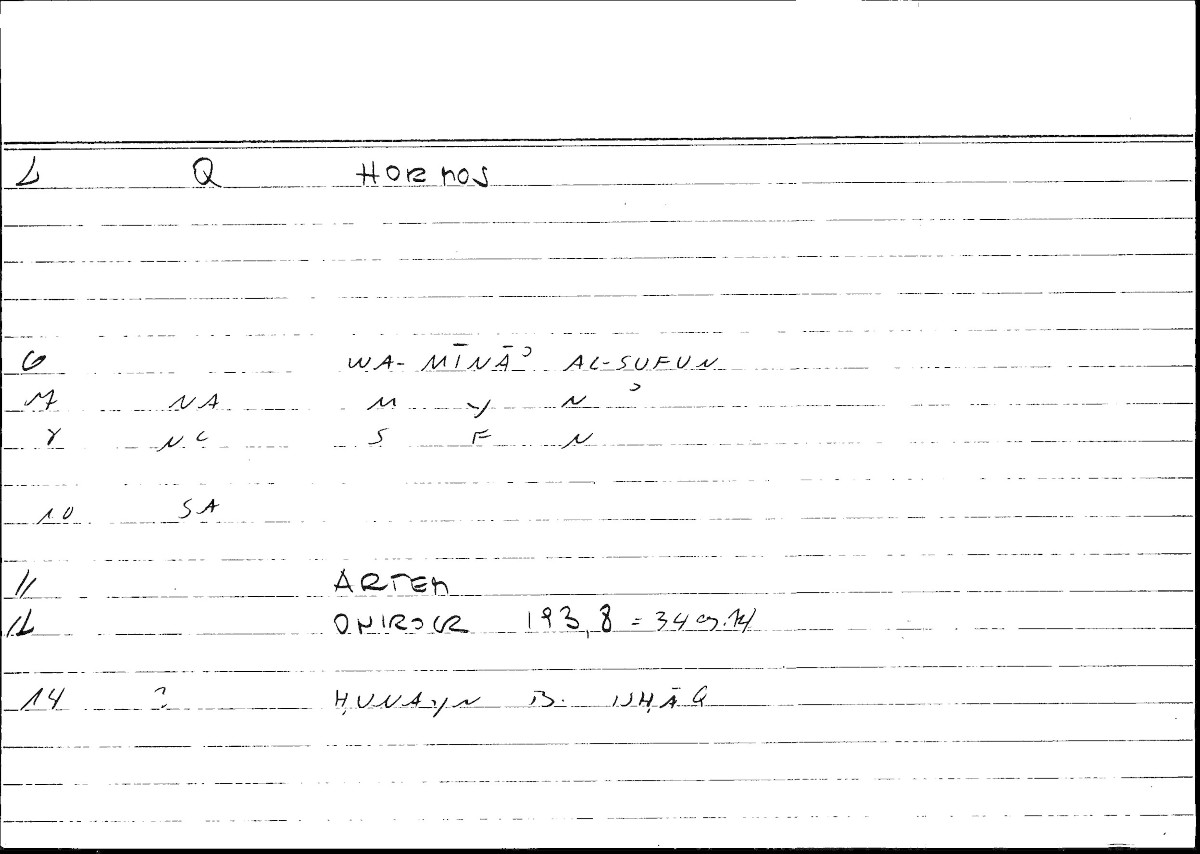 2 Q HORMOS
6 WA-MĪNĀʾ AL-SUFUN
7 NA M Y N ʾ
8 NC S F N
10 SA
11 ARTEM
12 ONIROCR 193,8 = 349.14
14 ? ḤUNAYN B. ISḤĀQ